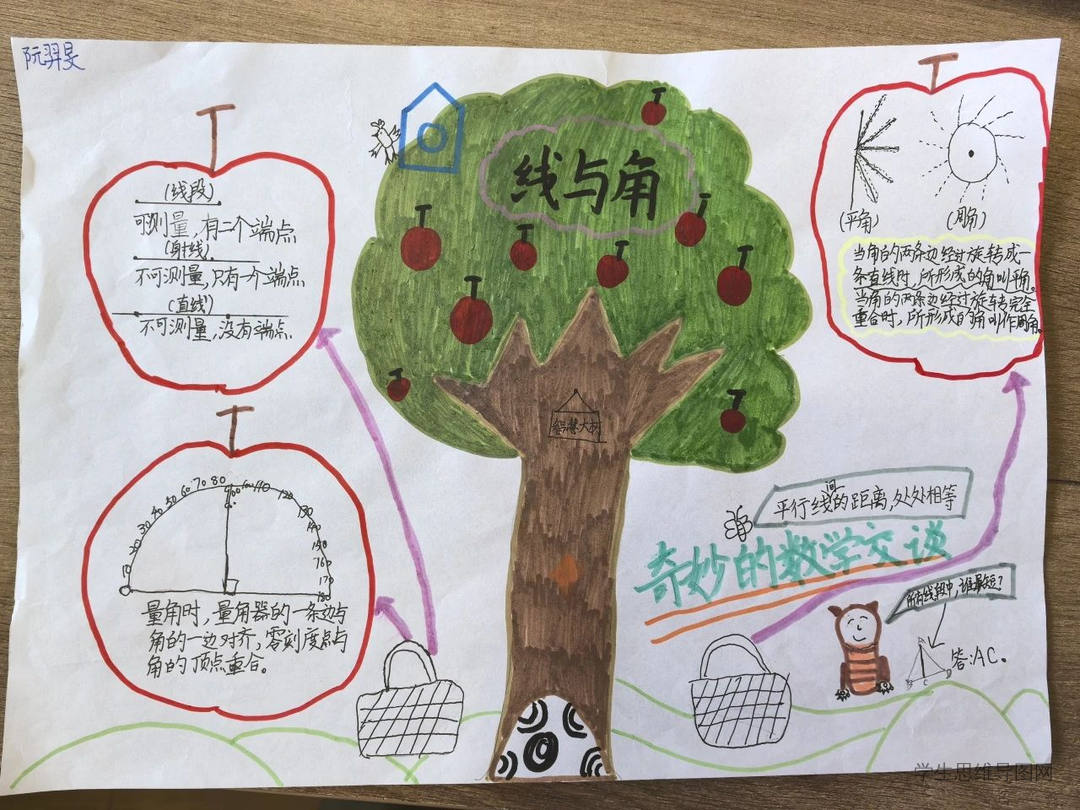 阮羿旻
线与角
(线段)
可测量,有二个端点
(射线)
不可测量,只有一个端点
(直线)
不可测量,没有端点.
(平角)
(周角)
当角的两条边经过旋转成一
条直线时,所形成的角叫平角。
当角的两条边经过旋转完全
重合时,所形成的角叫作周角。
智慧大树
30 40 50 60 70 80 90 100 110 120 130 140 150 160 170 180
量角时,量角器的一条边与
角的一边对齐,零刻度点与
角的顶点重合。
平行线间的距离,处处相等
奇妙的数学交谈
所有线段中,谁最短?
答:AC。
学生思维导图网